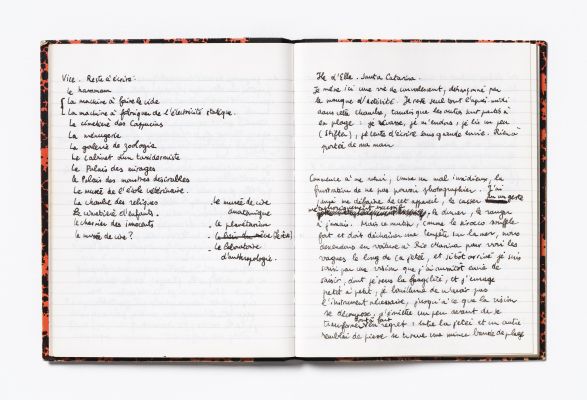 Vice. Reste à écrire.
le hammam
la machine à faire le vide
La machine à fabriquer de l'électricité statique.
Le cimetière des Capucins
La ménagerie
La galerie de zoologie
Le Cabinet d'un taxidermiste
Le Palais des mirages
Le Palais des monstres désirables
Le musée de l'école vétérinaire.
La chambre des reliques
Le cimetière d'enfants.
le charnier des innocents
le musée de cire ?
- le musée de cire
anatomique
- le planétarium
- le laboratoire
d'anthropologie.
Ile d'Elbe. Santa Catarina.
Je mène ici une vie de convalescent, désarçonné par
le manque d'activité. Je reste seul tout l'après-midi
dans cette chambre, tandis que les autres sont partis à
la plage : je rêvasse, je m'endors, je lis un peu
(Stifter), je tente d'écrire sans grande envie. Rien à
portée de ma main
Commence à me venir, comme un mal insidieux, la
frustration de ne pas pouvoir photographier. J'ai
voulu me défaire de cet appareil, le casser en un geste
le donner, le ranger
à jamais. Mais ce matin, comme le sirocco souffle
fort et doit déchaîner une tempête sur la mer, nous
descendons en voiture à Rio Marina pour voir les
vagues le long de la jetée, et sitôt arrivé je suis
saisi par une vision que j'ai aussitôt envie de
saisir, dont je sens la fragilité, et j'enrage
petit à petit, je de n'avoir pas
l'instrument nécessaire, jusqu'à ce que la vision
se décompose, j'émiette un peu avant de se
transformer tout à fait en regret : entre la jetée et un autre
remblai de pierre se trouve une mince bande de plage